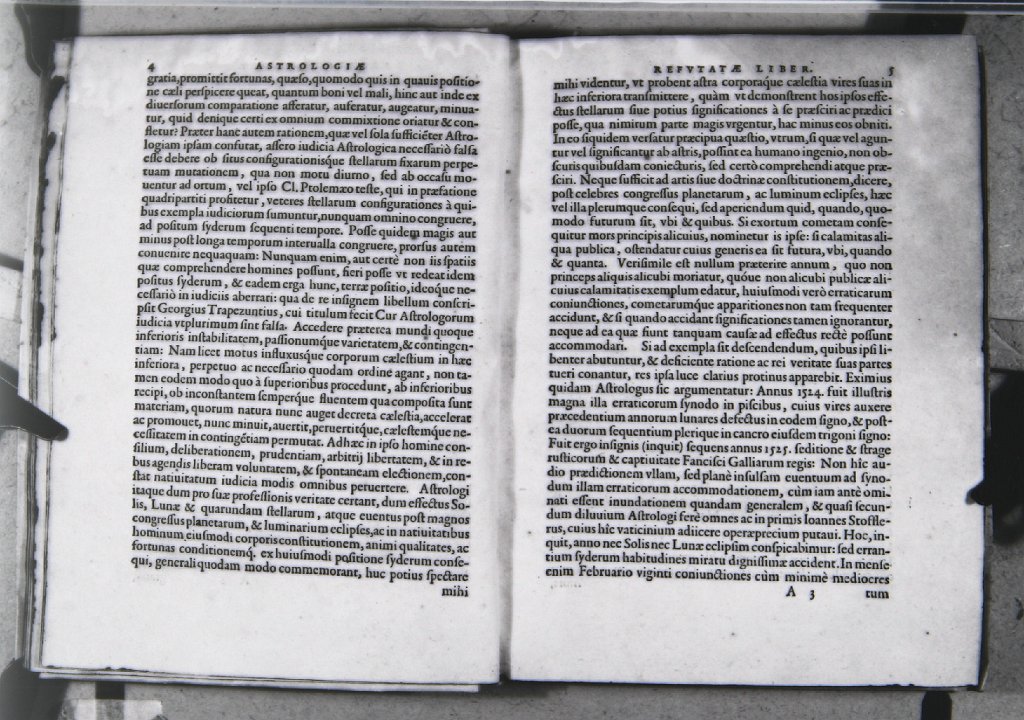 4 ASTROLOGIÆ
gratia, promittit fortunas, quæso, quomodo quis in quauis positio-
ne cæli perspicere queat, quantum boni vel mali, hinc aut inde ex
diuersorum comparatione afferatur, auferatur, augeatur, minua-
tur, quid denique certi ex omnium commixtione oriatur & con-
fletur? Præter hanc autem rationem, quæ vel sola sufficiēter Astro-
logiam ipsam confutat, assero iudicia Astrologica necessariò falsa
esse debere ob situs configurationisque stellarum fixarum perpe-
tuam mutationem, qua non motu diurno, sed ab occasu mo-
uentur ad ortum, vel ipso Cl. Ptolemæo teste, qui in præfatione
quadripartiti profitetur, veteres stellarum configurationes à qui-
bus exempla iudiciorum sumuntur, nunquam omnino congruere,
ad positum syderum sequenti tempore. Posse quidem magis aut
minus post longa temporum interualla congruere, prorsus autem
conuenire nequaquam: Nunquam enim, aut certè non iis spatiis
quæ comprehendere homines possunt, fieri posse vt redeat idem
positus syderum, & eadem erga hunc, terræ positio, ideoque ne-
cessariò in iudiciis aberrari: qua de re insignem libellum conscri-
psit Georgius Trapezuntius, cui titulum fecit Cur Astrologorum
iudicia vtplurimum sint falsa. Accedere præterea mundi quoque
inferioris instabilitatem, passionumque varietatem, & contingen-
tiam: Nam licet motus influxusque corporum cælestium in hæc
inferiora, perpetuo ac necessario quodam ordine agant, non ta-
men eodem modo quo à superioribus procedunt, ab inferioribus
recipi, ob inconstantem semperque fluentem qua composita sunt
materiam, quorum natura nunc auget decreta cælestia, accelerat
ac promouet, nunc minuit, auertit, peruertitque, cælestemque ne-
cessitatem in contingētiam permutat. Adhæc in ipso homine con-
silium, deliberationem, prudentiam, arbitrij libertatem, & in re-
bus agendis liberam voluntatem, & spontaneam electionem, con-
stat natiuitatum iudicia modis omnibus peruertere. Astrologi
itaque dum pro suæ professionis veritate certant, dum effectus So-
lis, Lunæ & quarundam stellarum, atque euentus post magnos
congressus planetarum, & luminarium eclipses, ac in natiuitatibus
hominum, eiusmodi corporis constitutionem, animi qualitates, ac
fortunas conditionemq. ex huiusmodi positione syderum conse-
qui, generali quodam modo commemorant, huc potius spectare
mihi
REFVTATÆ LIBER. 5
mihi videntur, vt probent astra corporaque cælestia vires suas in
hæc inferiora transmittere, quàm vt demonstrent hos ipsos effe-
ctus stellarum siue potius significationes à se præsciri ac prædici
posse, qua nimirum parte magis vrgentur, hac minus eos obniti.
In eo siquidem versatur præcipua quæstio, vtrum, si quæ vel agun-
tur vel significantur ab astris, possint ea humano ingenio, non ob-
scuris quibusdam coniecturis, sed certò comprehendi atque præ-
sciri. Neque sufficit ad artis siue doctrinæ constitutionem, dicere,
post celebres congressus planetarum, ac luminum eclipses, hæc
vel illa plerumque consequi, sed aperiendum quid, quando, quo-
modo futurum sit, vbi & quibus. Si exortum cometam conse-
quitur mors principis alicuius, nominetur is ipse: si calamitas ali-
qua publica, ostendatur cuius generis ea sit futura, vbi, quando
& quanta. Verisimile est nullum præterire annum, quo non
princeps aliquis alicubi moriatur, quóue non alicubi publicæ ali-
cuius calamitatis exemplum edatur, huiusmodi verò erraticarum
coniunctiones, cometarumque apparitiones non tam frequenter
accidunt, & si quando accidant significationes tamen ignorantur,
neque ad ea quæ fiunt tanquam causæ ad effectus rectè possunt
accommodari. Si ad exempla sit descendendum, quibus ipsi li-
benter abutuntur, & deficiente ratione ac rei veritate suas partes
tueri conantur, res ipsa luce clarius protinus apparebit. Eximius
quidam Astrologus sic argumentatur: Annus 1524. fuit illustris
magna illa erraticorum synodo in piscibus, cuius vires auxere
præcedentium annorum lunares defectus in codem signo, & post-
ea duorum sequentium plerique in cancro eiusdem trigoni signo:
Fuit ergo insignis (inquit) sequens annus 1525. seditione & strage
rusticorum & captiuitate Fancisci Galliarum regis: Non hîc au-
dio prædictionem vllam, sed planè insulsam euentuum ad syno-
dum illam erraticorum accommodationem, cùm iam antè omi-
nati essent inundationem quandam generalem, & quasi secun-
dum diluuium Astrologi ferè omnes ac in primis Ioannes Stoffle-
rus, cuius hîc vaticinium adiicere operæprecium putaui. Hoc, in-
quit, anno nec Solis nec Lunæ eclipsim conspicabimur: sed erran-
tium syderum habitudines miratu dignissimæ accident. In mense
enim Februario viginti coniunctiones cùm minimè mediocres
A 3 tum